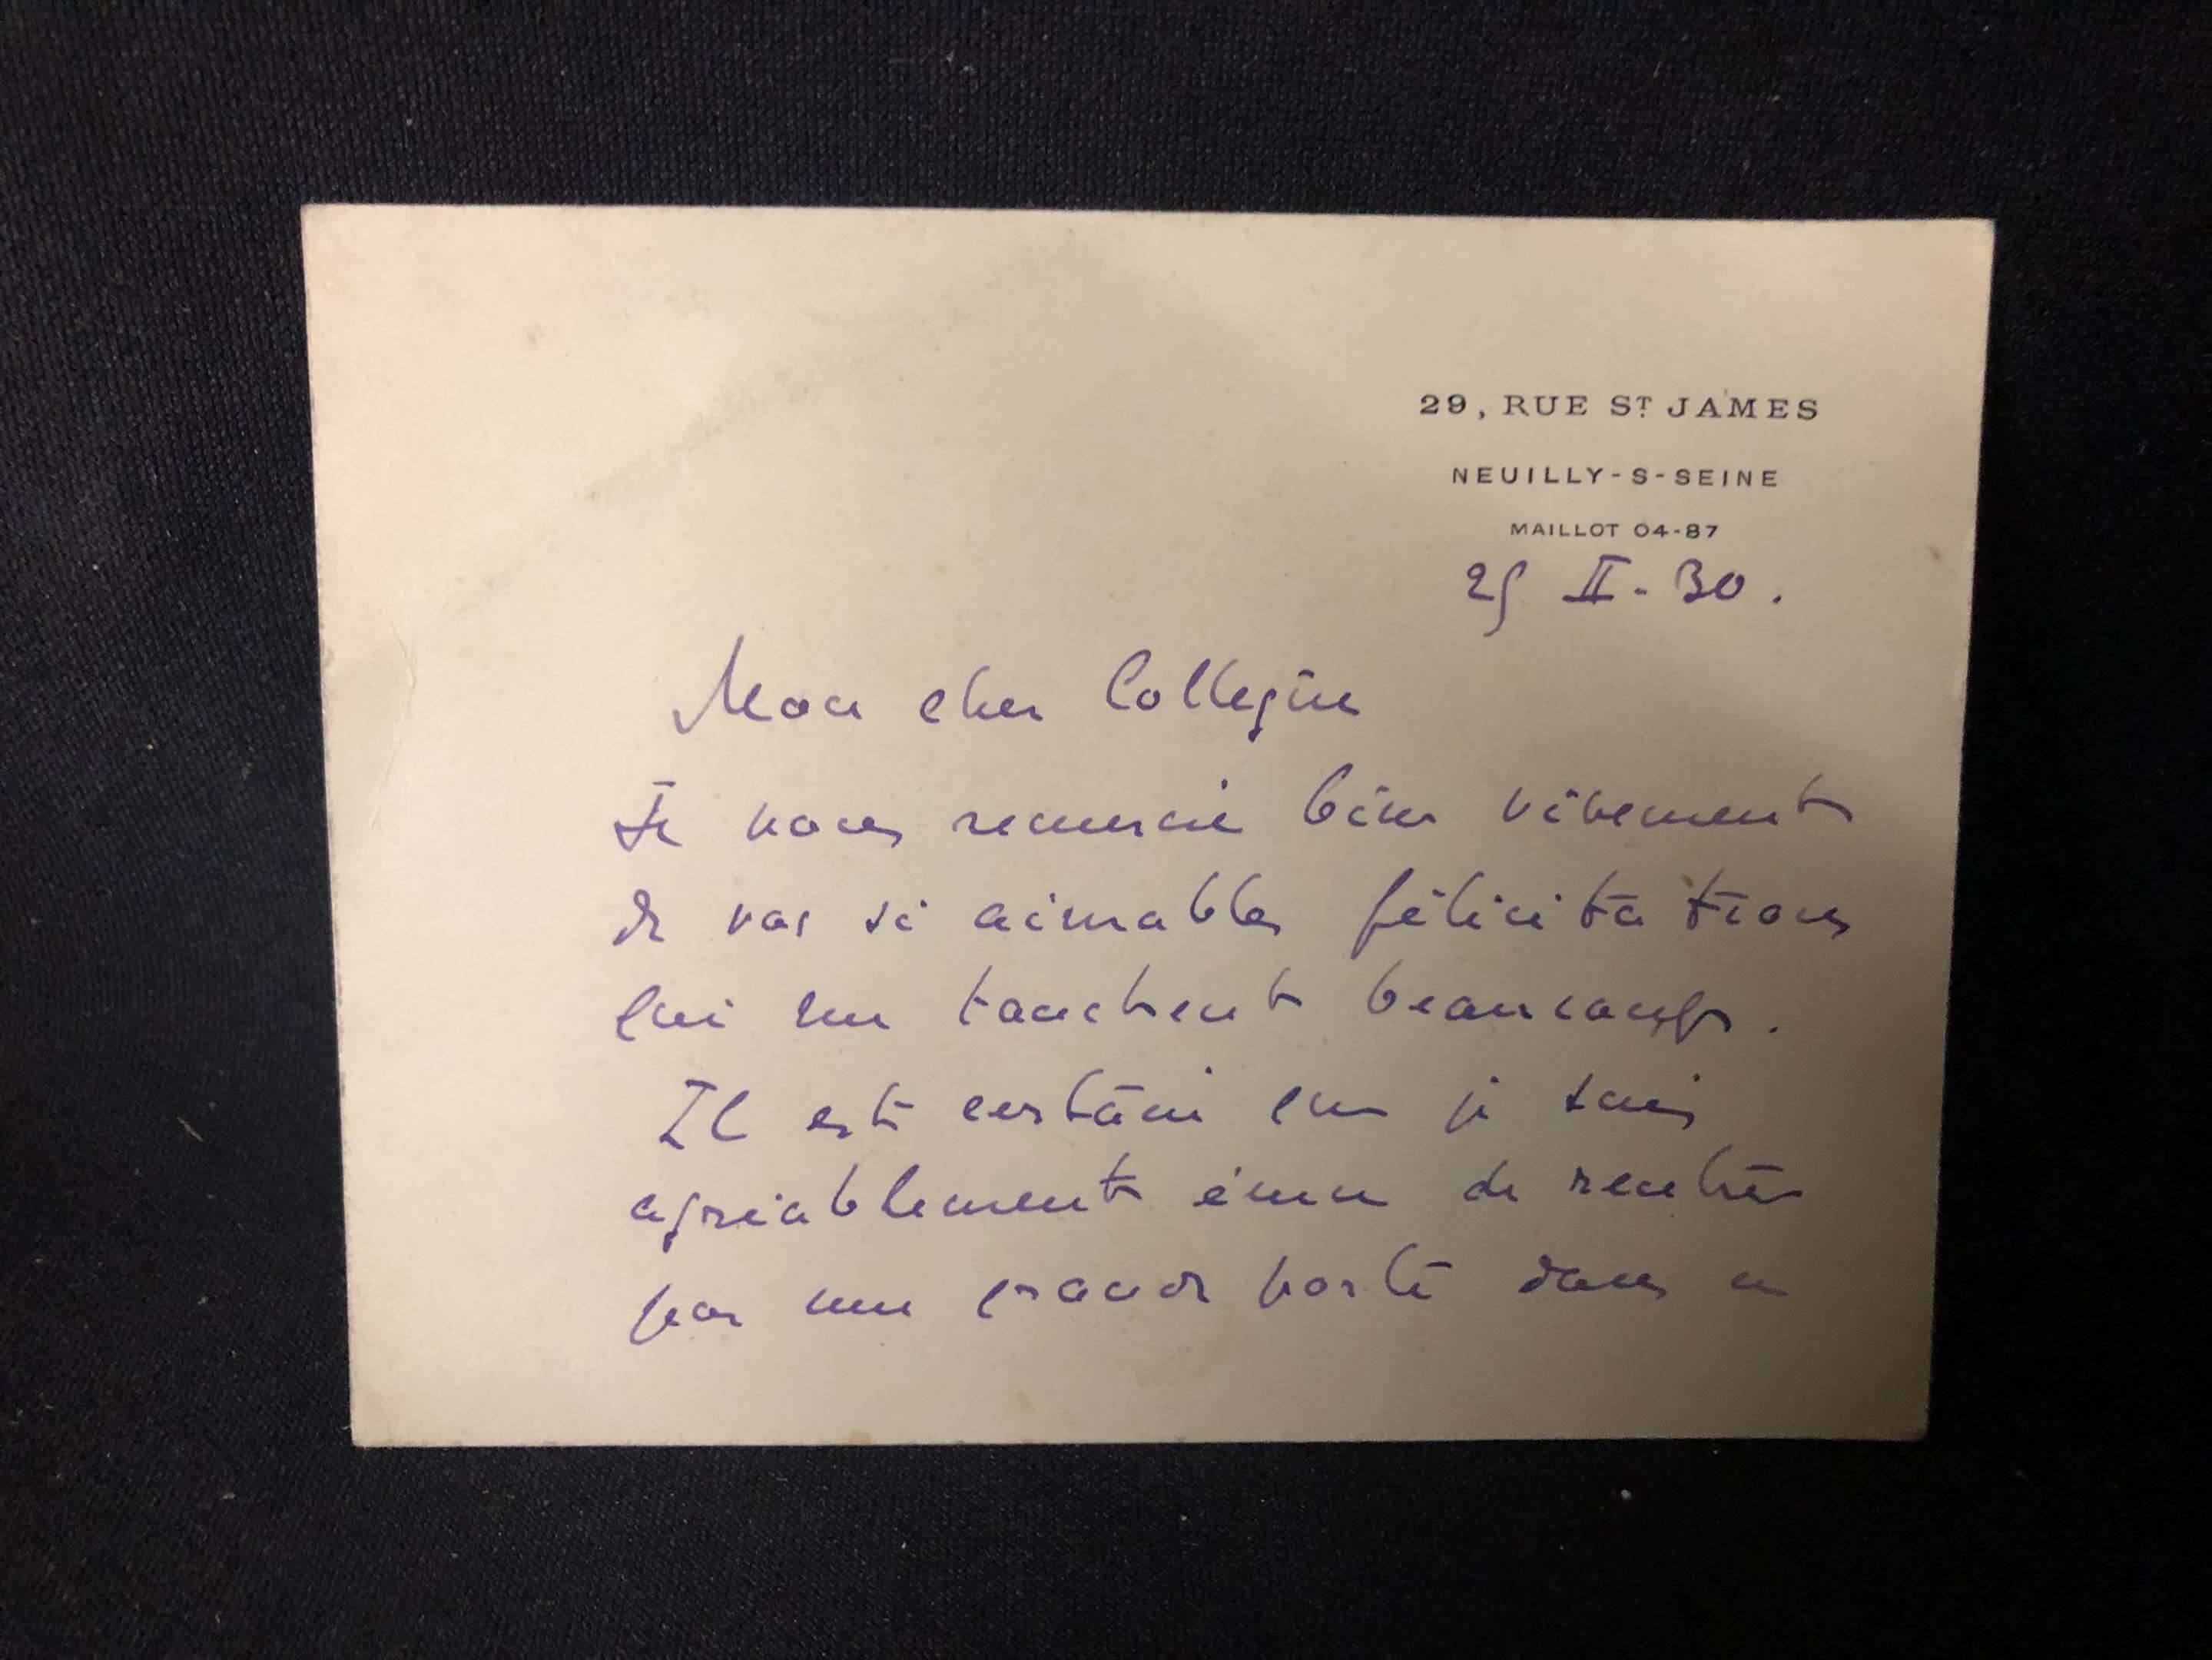 29, RUE ST JAMES
NEUILLY-S-SEINE
MAILLOT 04-87
25 II. 30.
Mon cher Collègue
Je vous remercie bien vivement
de vos si aimables félicitations
qui me touchent beaucoup.
Il est certain que je suis
agréablement ému de rentrer
par une grande porte dans ce